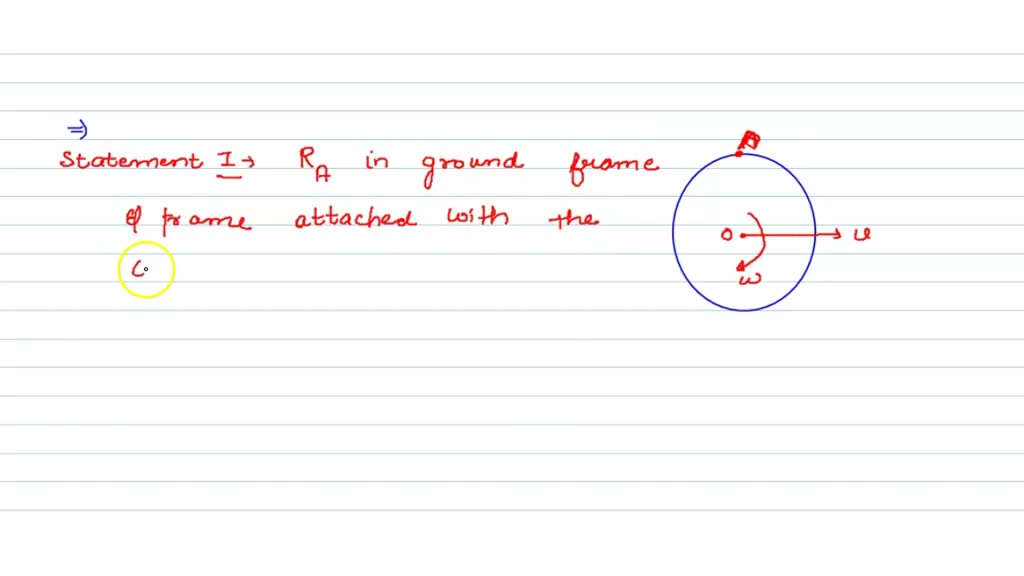 ⇒
Statement I → R_A in ground frame
& frame attached with the
C
A
O
u
ω